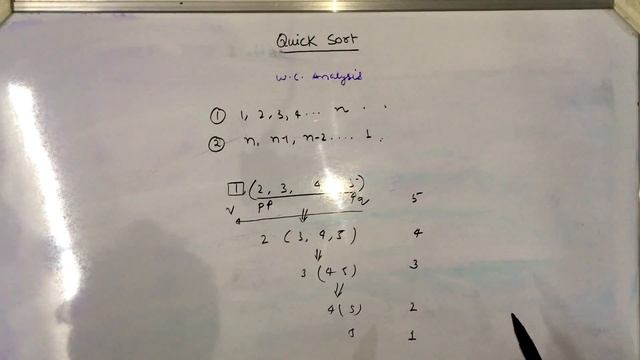 Quick Sort
W.C. Analysis
① 1, 2, 3, 4 ... n . .
② n, n-1, n-2 .... 1 .
1 (2, 3, 4 5) 5
PP q
2 (3, 4, 5) 4
3 (4 5) 3
4 (5) 2
5 1